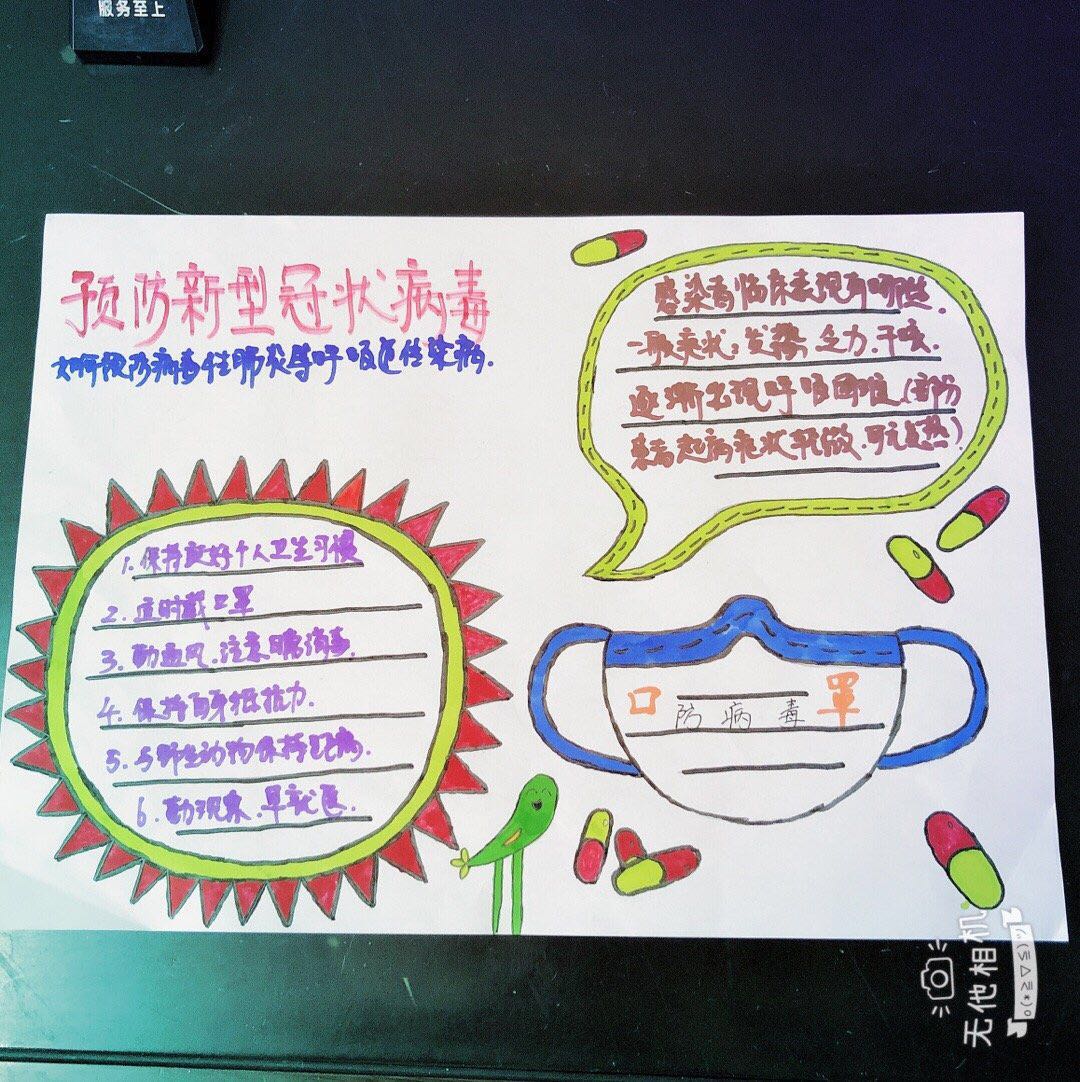 服务至上
预防新型冠状病毒
如何预防病毒性肺炎等呼吸道传染病.
感染者临床表现有哪些.
一般症状:发热,乏力,干咳.
逐渐出现呼吸困难(部份
患者起病症状轻微,可无发热)
1.保持良好个人卫生习惯
2.适时戴口罩
3.勤通风.注意消毒.
4.保持自身抵抗力.
5.与野生动物保持距离.
6.勤观察.早就医.
口 罩
防病毒
无他相机